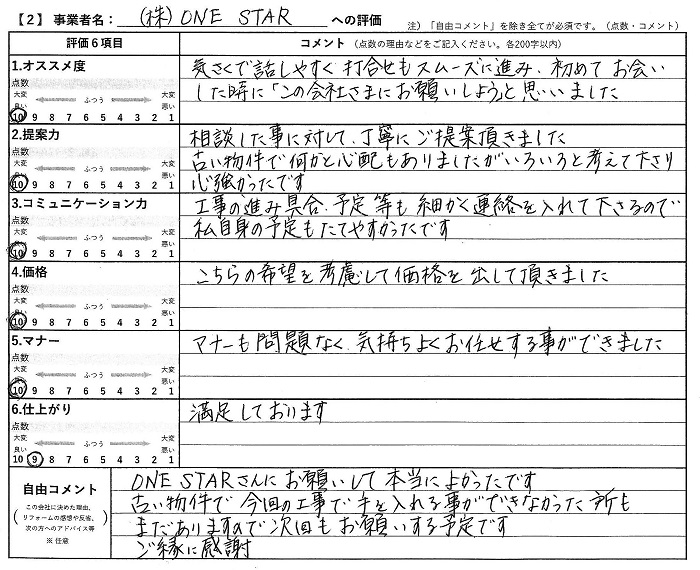 【2】 事業者名： (株) ONE STAR への評価 注）「自由コメント」を除き全てが必須です。（点数・コメント）
評価６項目 コメント （点数の理由などをご記入ください。各200字以内）
1.オススメ度 気さくで話しやすく打合せもスムーズに進み、初めてお会い
点数 した時に「この会社さまにお願いしよう」と思いました
大変良い ふつう 大変悪い
10 9 8 7 6 5 4 3 2 1
2.提案力 相談した事に対して、丁寧にご提案頂きました
点数 古い物件で何かと心配もありましたがいろいろと考えて下さり
大変良い ふつう 大変悪い
心強かったです
10 9 8 7 6 5 4 3 2 1
3.コミュニケーション力 工事の進み具合、予定等も細かく連絡を入れて下さるので
点数 私自身の予定もたてやすかったです
大変良い ふつう 大変悪い
10 9 8 7 6 5 4 3 2 1
4.価格 こちらの希望を考慮して価格を出して頂きました
点数
大変良い ふつう 大変悪い
10 9 8 7 6 5 4 3 2 1
5.マナー マナーも問題なく、気持ちよくお任せする事ができました
点数
大変良い ふつう 大変悪い
10 9 8 7 6 5 4 3 2 1
6.仕上がり 満足しております
点数
大変良い ふつう 大変悪い
10 9 8 7 6 5 4 3 2 1
自由コメント
（この会社に決めた理由、
リフォームの感想や反省、
次の方へのアドバイス等）
※ 任意
ONE STARさんにお願いして本当によかったです
古い物件で今回の工事で手を入れる事ができなかった所も
まだありますので次回もお願いする予定です
ご縁に感謝